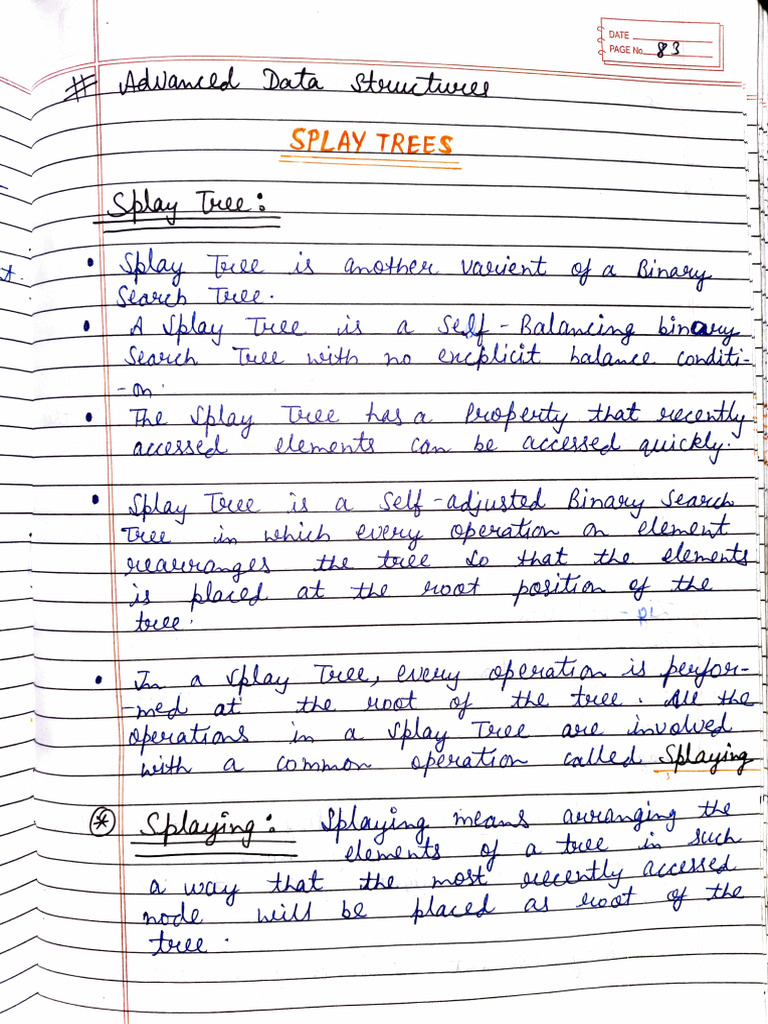 DATE
PAGE No. 83
# Advanced Data Structures
SPLAY TREES
Splay Tree:
• Splay Tree is another varient of a Binary
Search Tree.
• A Splay Tree is a Self-Balancing binary
Search Tree with no excplicit balance conditi-
-on.
• The Splay Tree has a Property that recently
accessed elements can be accessed quickly.
• Splay Tree is a Self-adjusted Binary Search
Tree in which every operation on element
rearranges the tree so that the elements
is placed at the root position of the
tree.
• In a Splay Tree, every operation is perfor-
-med at the root of the tree. All the
operations in a Splay Tree are involved
with a common operation called Splaying
* Splaying: Splaying means arranging the
elements of a tree in such
a way that the most recently accessed
node will be placed as root of the
tree.